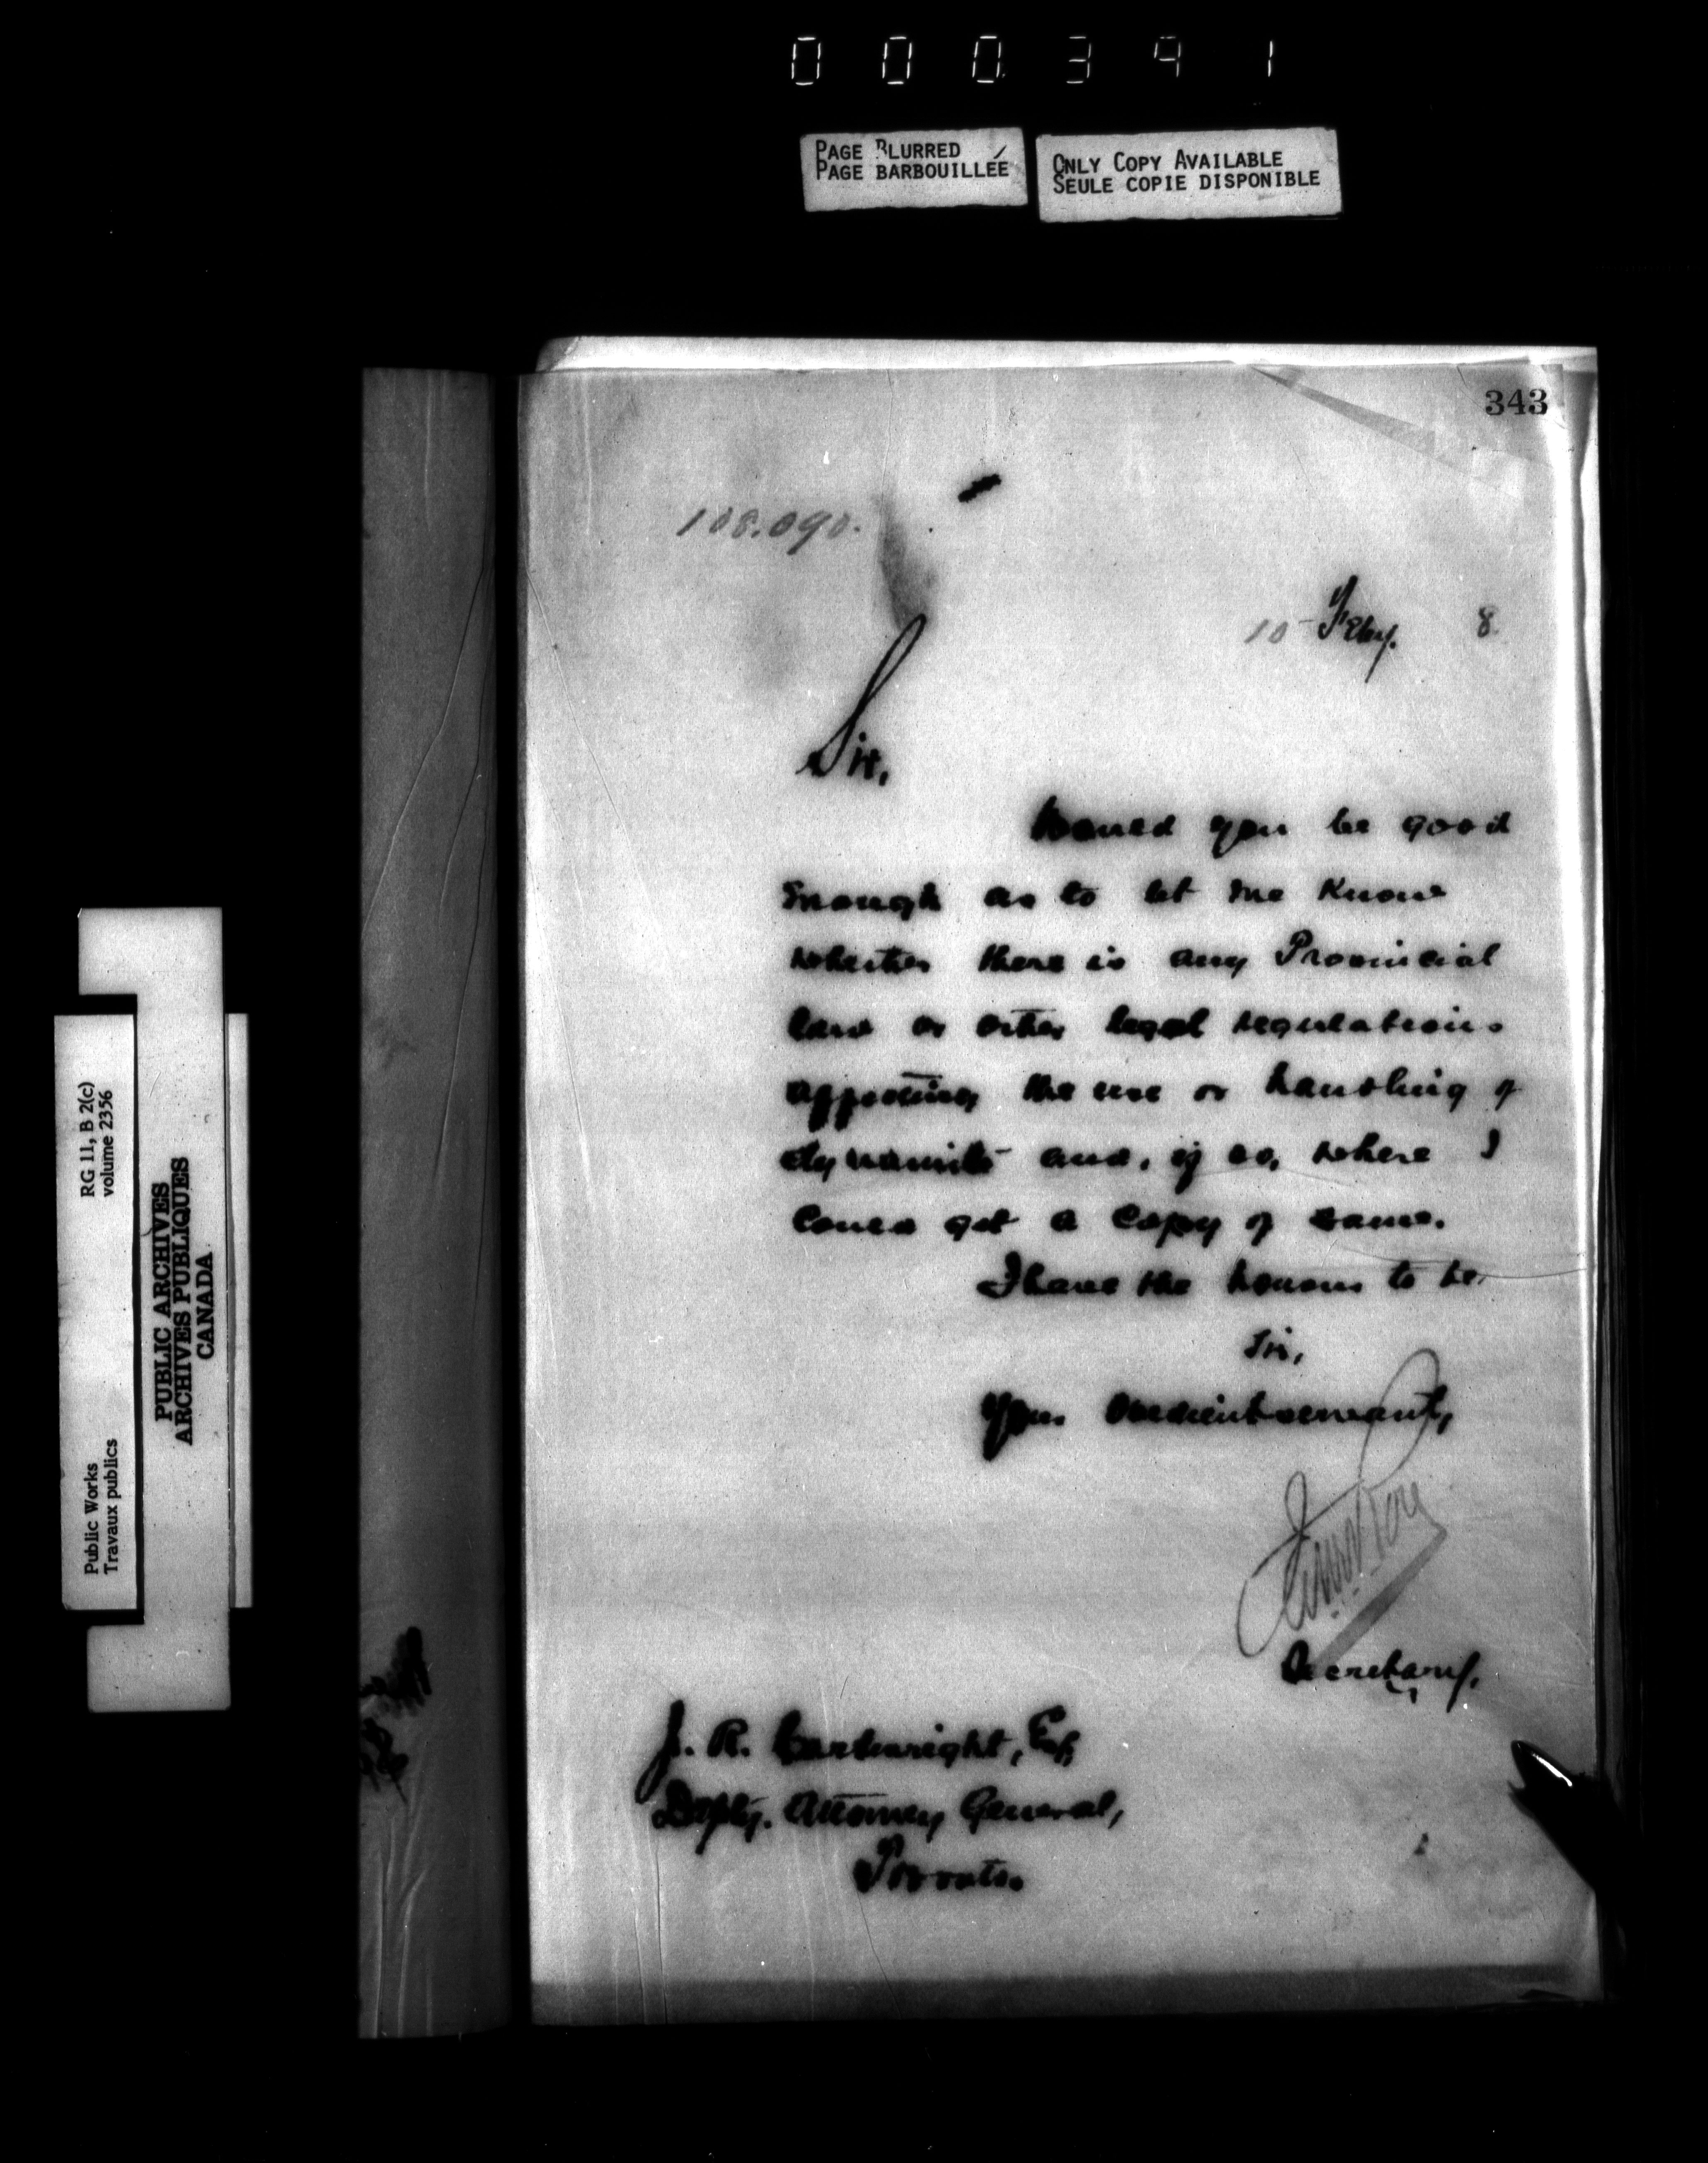 000391
PAGE BLURRED
PAGE BARBOUILLÉE
ONLY COPY AVAILABLE
SEULE COPIE DISPONIBLE
343
108.090.
10 Feby. 8
Sir,
Would you be good
enough as to let me know
whether there is any Provincial
law or other legal regulations
affecting the use or handling of
dynamite and, if so, where I
could get a copy of same.
I have the honour to be,
Sir,
Your obedient servant,
Secretary.
J. R. Cartwright, Esq,
Depty. Attorney General,
Toronto.
RG 11, B 2(c)
volume 2356
Public Works
Travaux publics
PUBLIC ARCHIVES
ARCHIVES PUBLIQUES
CANADA